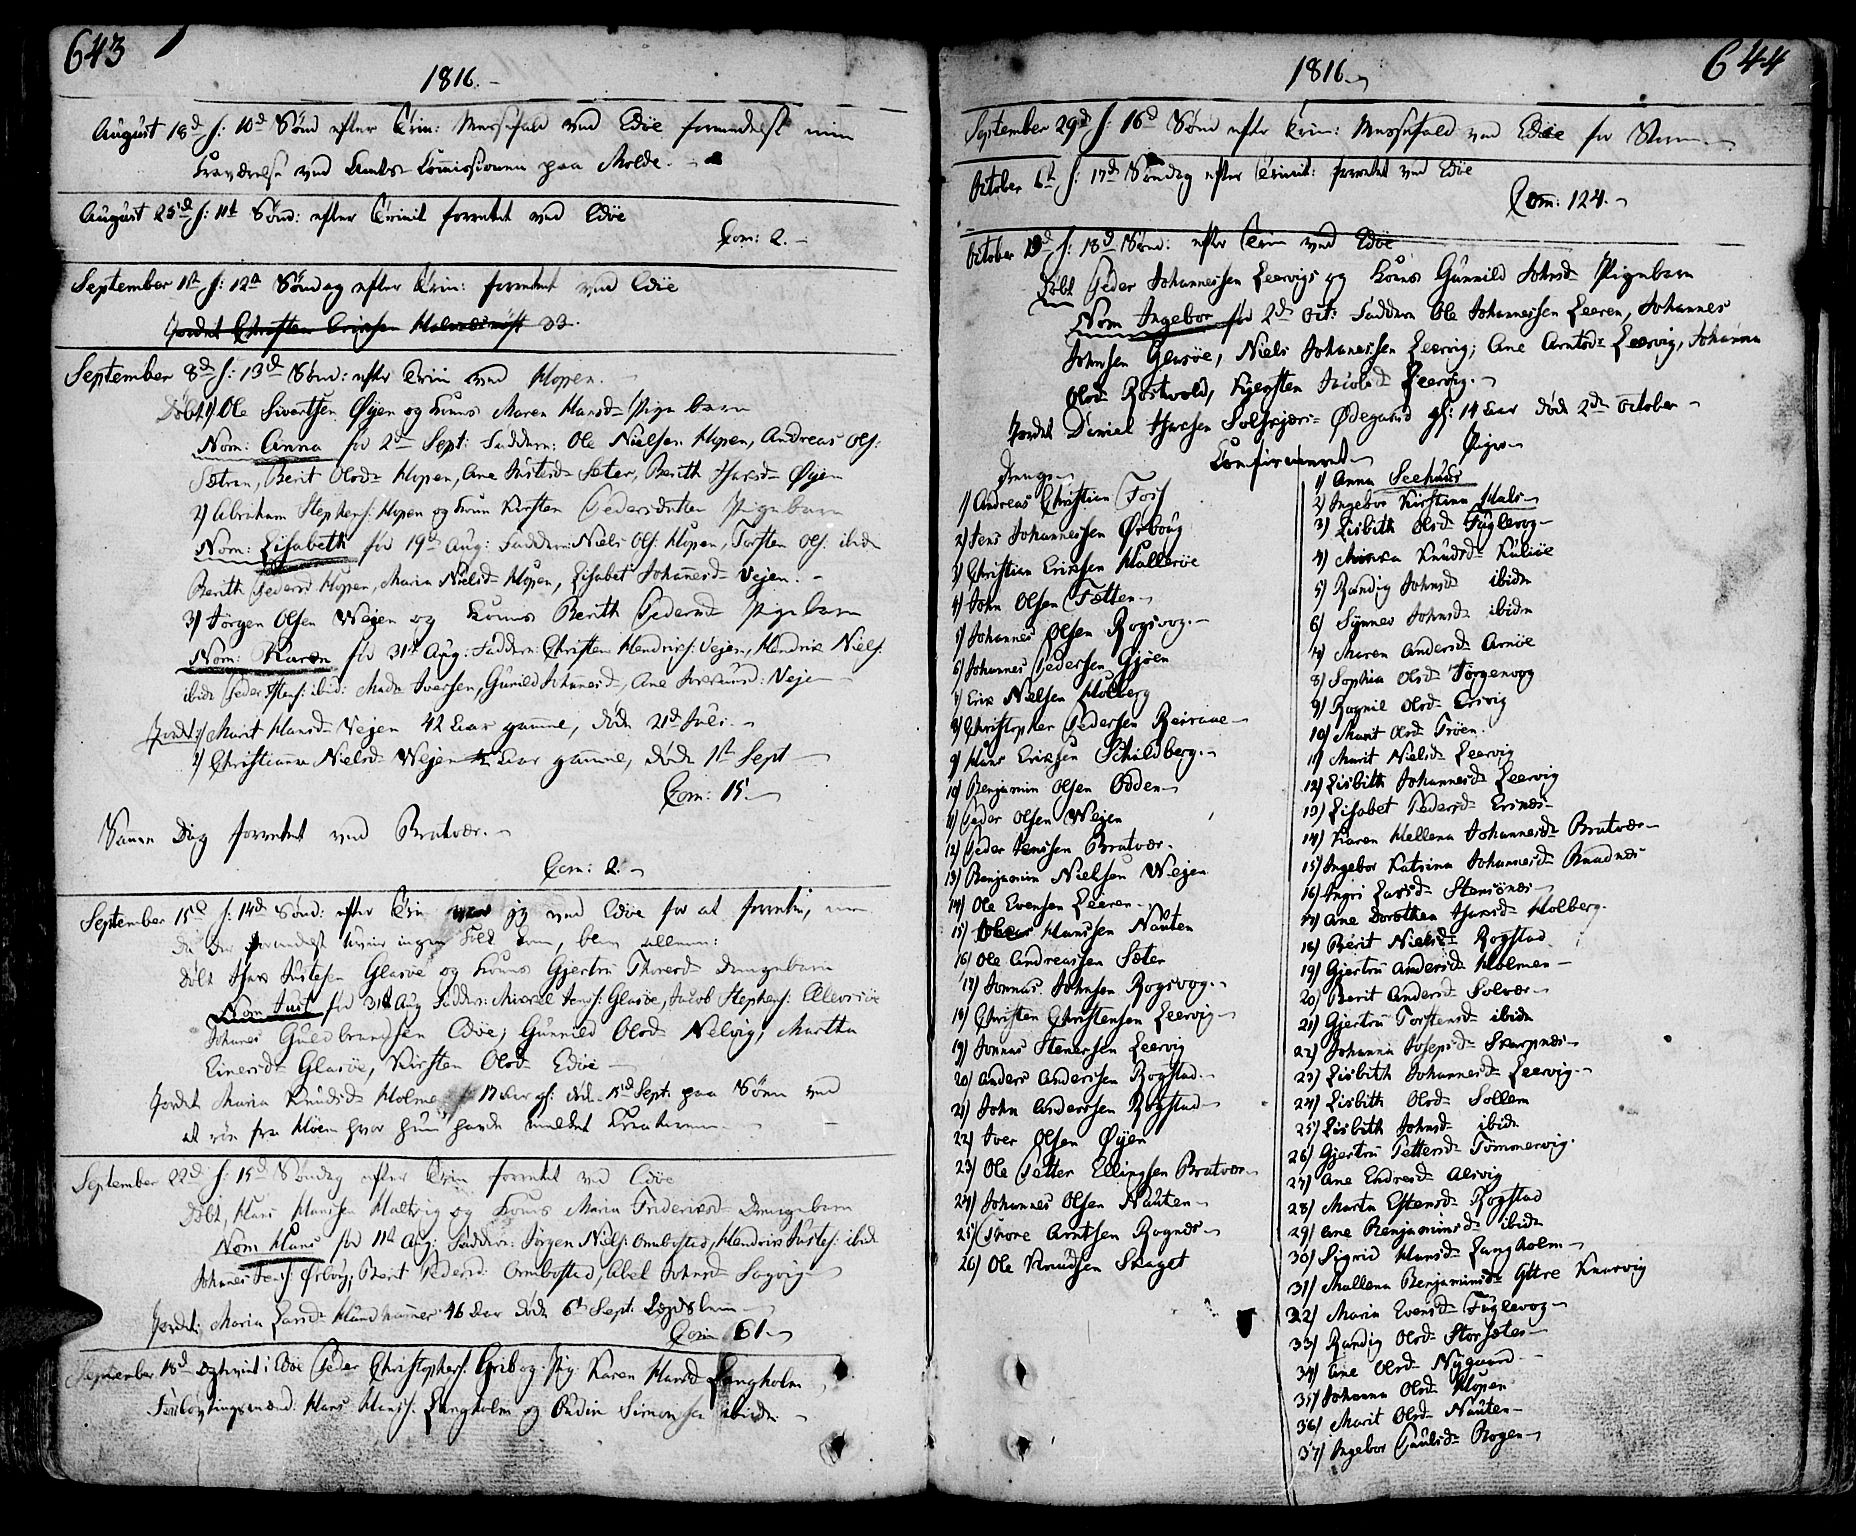 643
1816.
August 18d f: 10d Sønd efter Trin: Messefald ved Edøe formedelst min
Fraværelse ved Amts Commissionen paa Molde.
August 25d f: 11t Sønd: efter Trinit forrettet ved Edøe
Com: 2.
September 1st f: 12te Søndag efter Trin: forrettet ved Edøe
Jordet Christen Erichsen 33.
September 8d f: 13d Sønd: efter Trin ved Hopen.
Døbt 1) Ole Sivertsen Øyen og Kones Maren Hansd Pigebarn
Nom: Anna fød 2d Sept: Faddere: Ole Nielsen Hopen, Andreas Ols:
Sætren, Berit Olsd Hopen, Ane Justsd Seter, Berith Hansd Øyen
2) Abraham Stephens: Hopen og Kone Kirsten Pedersdatter Pigebarn
Nom: Lisabeth fød 19d Aug: Faddere: Niels Ols: Hopen, Torsten Ols. ibidn
Berith Pedersd Hopen, Maria Nielsd Hopen, Lisabet Johannesd Vejen.
3) Jørgen Olsen Wejen og Kones Berith Pedersd Pigebarn
Nom: Karen fød 31t Aug: Faddere: Christen Hendrichs: Vejen, Hendrik Niels:
ibidn Peder ibid: Iversen, Gunild Johannesd, Ane Vejen
Jordet 1) Marit Hansd Vejen 42 Aar gamme, døde 21d Juli.
2) Christianna Nielsd Wejen Aar gamme, døde 1st Sept
Com: 15.
Samme Dag forrettet ved Bratvær.
Com: 2.
September 15d f: 14d Sønd: efter Trin var jeg ved Edøe for at forrette, men
da der formedelst ingen Folk kom, blev allene:
Døbt Justesen Glasøe og Kones Gjertru Thoresd Drengebarn
Nom Just fød 31t Aug Fadder: Mickel Jens: Glasøe, Jacob Stephens:
Johannes Guldbrandsen Edøe, Gunnild Olsd Nelvig, Martha
Einersd Glasøe, Kirsten Olsd Edøe
Jordet Maria Knudsd Holme 17 Aar gl: døde 1d Sept: paa Søen ved
at roe fra hvor hun havde Creaturene
September 22d f: 15d Søndag efter Trin forrettet ved Edøe
Døbt, Hans Hanssen Haltvig og Kones Maria Friderichsd Drengebarn
Nom Hans fød 11t Aug: Faddere: Jørgen Niels: Ormbostad, Hendrich Justes: ibid
Johannes Jens: Ørbog, Berit Pedersd Ormbostad, Abel Johnsd Sagvig
Jordet: Maria Larsd Hundhammer 46 Aar døde 6t Sept:
Com 61
September 18d Copuleret i Edøe Peder Christophers: Grib og Pig: Karen Hansd Langholm
Forlovingsmænd: Hans Hanss: Langholm og Simonsen ibidn
1816
644
September 29d f: 16d Sønd efter Trin: Messefald ved Edøe for Storm
October 6t f: 17d Søndag efter Trinit: forrettet ved Edøe
Com: 124.
October 13d f: 18d Sønd: efter Trin ved Edøe
Døbt Peder Johannessen Leervigs og Kones Gunnild Johnsd Pigebarn
Nom Ingebor fød 2d Oct: Faddere Ole Johannessen Leeren, Johannes
Johnsen Glasøe, Niels Johannessen Leervig; Ane Arntsd Leervig, Johanna
Olsd Rostvold, Jacobsd Leervig.
Jordet Daniel Solskjærs Ødegaard gl: 14 Aar døde 2d October
Confirmeret
Drenge
1) Andreas Christian Fos
2) Jens Johannessen Ørboug
3) Christian Erichsen Hallerøe
4) John Olsen Tetten
5) Johannes Olsen Rogsvog.
6) Johannes Pedersen Gjøen
7) Erik Nielsen Holberg
8) Christopher Pedersen Reiraae
9) Hans Erichsen Schildberg.
10) Benjamin Olsen Odden
11) Peder Olsen Wejen
12) Peder Jenssen Bratvær.
13) Benjamin Nielsen Wejen
14) Ole Evensen Leeren
15) Hanssen Nauten
16) Ole Andreassen Sæter
17) Jonnas Johnsen Rogsvog.
18) Christen Christensen Leervig
19) Jonnas Stenersen Leervig
20) Anders Anderssen Rogstad.
21) John Anderssen Rogstad
22) Iver Olsen Øyen
23) Ole Petter Ellingsen Bratvær
24) Johannes Olsen Nauten
25) Thore Arntsen Rognæs
26) Ole Knudsen Skaget
Piger
1) Anna Seehuus
2) Ingebor Kirstina Hals
3) Lisbith Olsd Fuglevog
4) Knudsd Kuløe
5) Randig Johnsd ibidn
6) Synnev Johnsd ibidn
7) Maren Andersd Arnøe
8) Sophia Olsd Jørgenvog
9) Ragnil Olsd Ersvig
10) Marit Olsd Trøen
11) Marit Nielsd Leervig
12) Lisbith Johannesd Leervig
13) Lisabet Pedersd Ersnes
14) Karen Hellena Johannesd Bratvær
15) Ingebor Katrina Johannesd Bradnæs
16) Ingri Larsd Stensønes
17) Ane Dorothea Hansd Holberg.
18) Berit Nielsd Rogstad
19) Gjertru Andersd Holmen
20) Berit Andersd Solvær
21) Gjertru Torstensd ibidn
22) Johanna Josepsd Skarpnæs
23) Lisbith Johannesd Leervig
24) Lisbith Olsd Sollem
25) Lisbith Johnsd ibidn
26) Gjertru Pettersd Tømmervig.
27) Ane Endresd Alsvig
28) Marta Estensd Rogstad
29) Ane Benjaminsd ibidn
30) Sigrid Hansd Langholm
31) Mallena Benjaminsd Yttre Knarvig
32) Maria Evensd Fuglevog
33) Randig Olsd Storsæter
34) Ane Olsd Nygaard
35) Johanna Olsd Hopen
36) Marit Olsd Nauten
37) Ingebor Paulsd Rogen